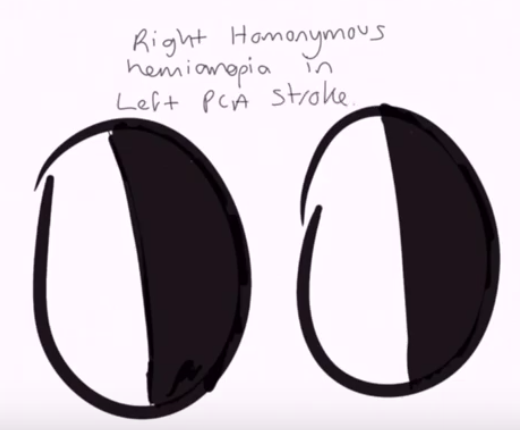 Right Homonymous
hemianopia in
Left PCA Stroke.